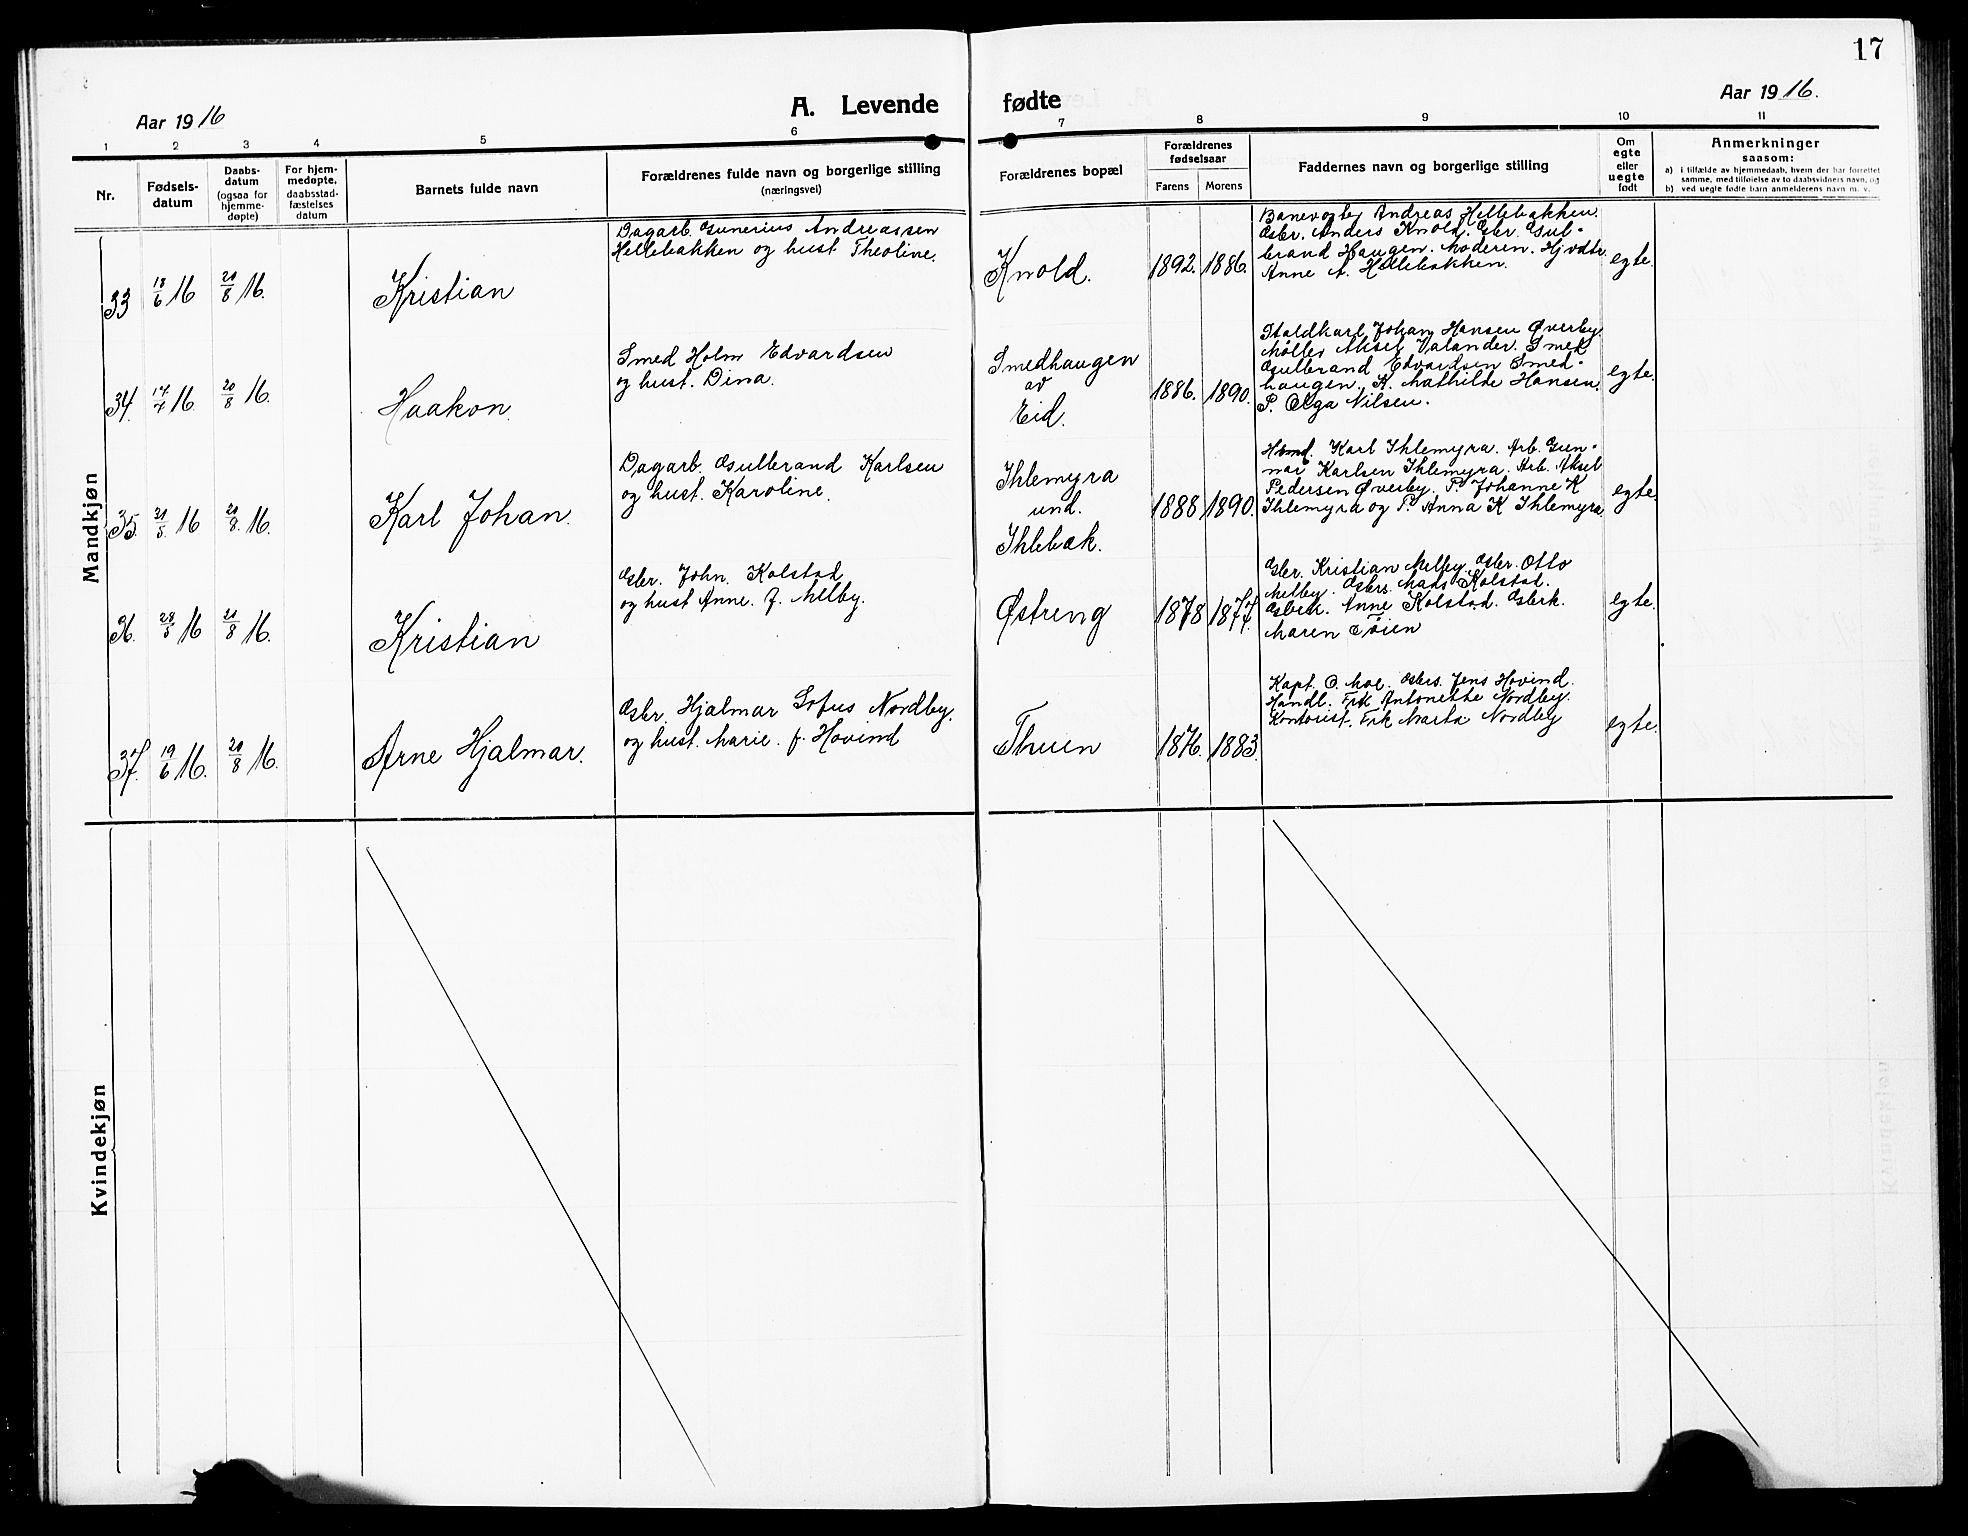 17
Aar 1916
A. Levende fødte
Aar 1916.
1 2 3 4 5 6 7 8 9 10 11
Nr.
Fødsels-
datum
Daabs-
datum
(ogsaa for
hjemme-
døpte)
For hjem-
medøpte,
daabsstad-
fæstelses
datum
Barnets fulde navn
Forældrenes fulde navn og borgerlige stilling
(næringsvei)
Forældrenes bopæl
Forældrenes
fødselsaar
Farens Morens
Faddernes navn og borgerlige stilling
Om
egte
eller
uegte
født
Anmerkninger
saasom:
a) i tilfælde av hjemmedaab, hvem der har forrettet
samme, med tilføielse av to daabsvidners navn, og
b) ved uegte fødte barn anmelderens navn m. v.
Mandkjøn
33 18/6 16 20/8 16.
Kristian
Dagarb. Gunerius Andreassen
Hellebakken og hust Theoline.
Knold.
1892. 1886.
Banevogter Andreas Hellebakken.
Gbr. Anders Knold. Gbr. Gul-
brand Haugen. Moderen. Hjvdtr.
Anne A. Hellebakken.
egte.
34. 17/7 16 20/8 16.
Haakon.
Smed Holm Edvardsen
og hust. Dina.
Smedhaugen
av
Eid.
1886. 1890.
Staldkarl Johan Hansen Øverby.
Møller Aksel Valander. Smed
Gulbrand Edvardsen Smed-
haugen. K. Mathilde Hansen.
P. Olga Nilsen.
egte.
35. 31/5 16 20/8 16.
Karl Johan.
Dagarb. Gulbrand Karlsen
og hust. Karoline.
Ihlemyra
und.
Ihlebæk.
1888 1890.
Hsmd. Karl Ihlemyra. Arb. Gun-
nar Karlsen Ihlemyra. Arb. Aksel
Pedersen Øverby. P. Johanne K
Ihlemyra og P. Anna K Ihlemyra
egte.
36. 28/5 16 20/8 16.
Kristian
Gbr. John. Kolstad
og hust Anne. f. Melby.
Østreng
1878 1877.
Gbr. Kristian Melby. Gbr. Otto
Melby. Gbrs. Mads Kolstad.
Gbrk. Anne Kolstad. Gbrk.
Maren Tøien
egte.
37. 19/6 16. 20/8 16.
Arne Hjalmar.
Gbr. Hjalmar Sofus Nordby.
og hust. Marie. f. Hovind
Thuen
1876. 1883.
Kapt. O. Moe. Gbrs. Jens Hovind.
Handl. Frk Antonette Nordby.
Kontorist. Frk Marta Nordby
egte.
Kvindekjøn